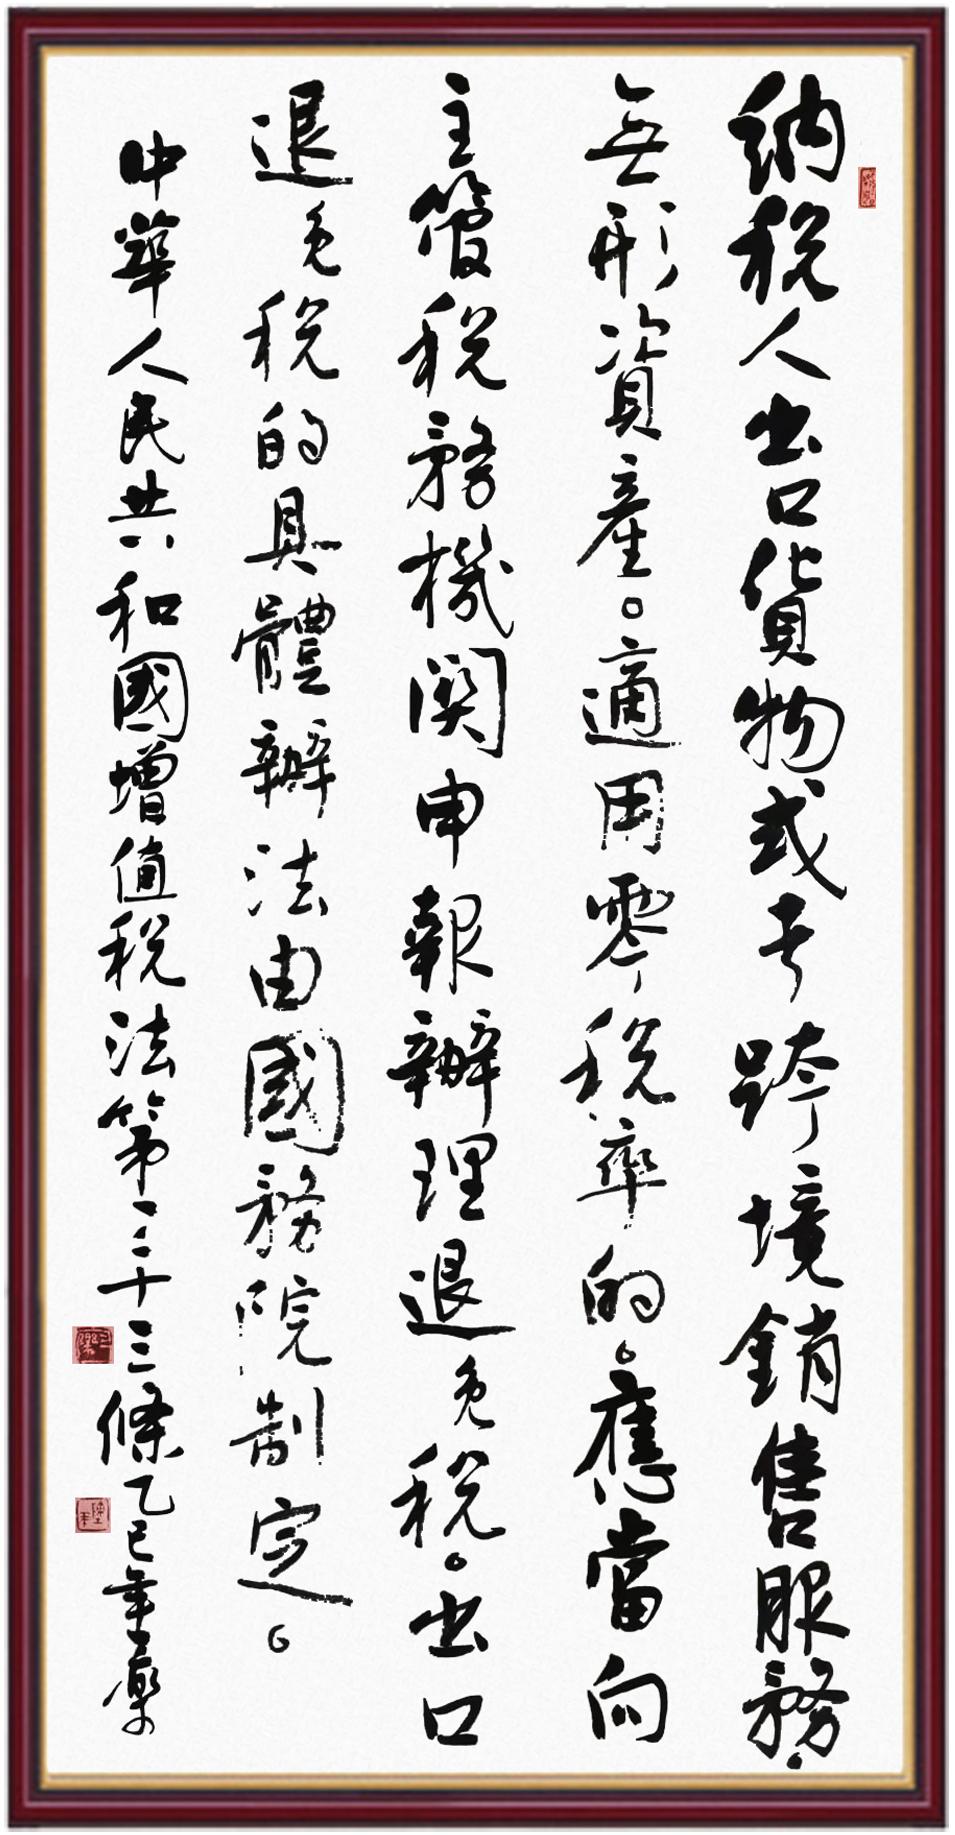 納税人出口貨物或者跨境銷售服務、
無形資產。適用零税率的。應當向
主管税務機関申報辦理退免税。出口
退免税的具體辦法由國務院制定。
中華人民共和國增值税法第三十三條乙巳年